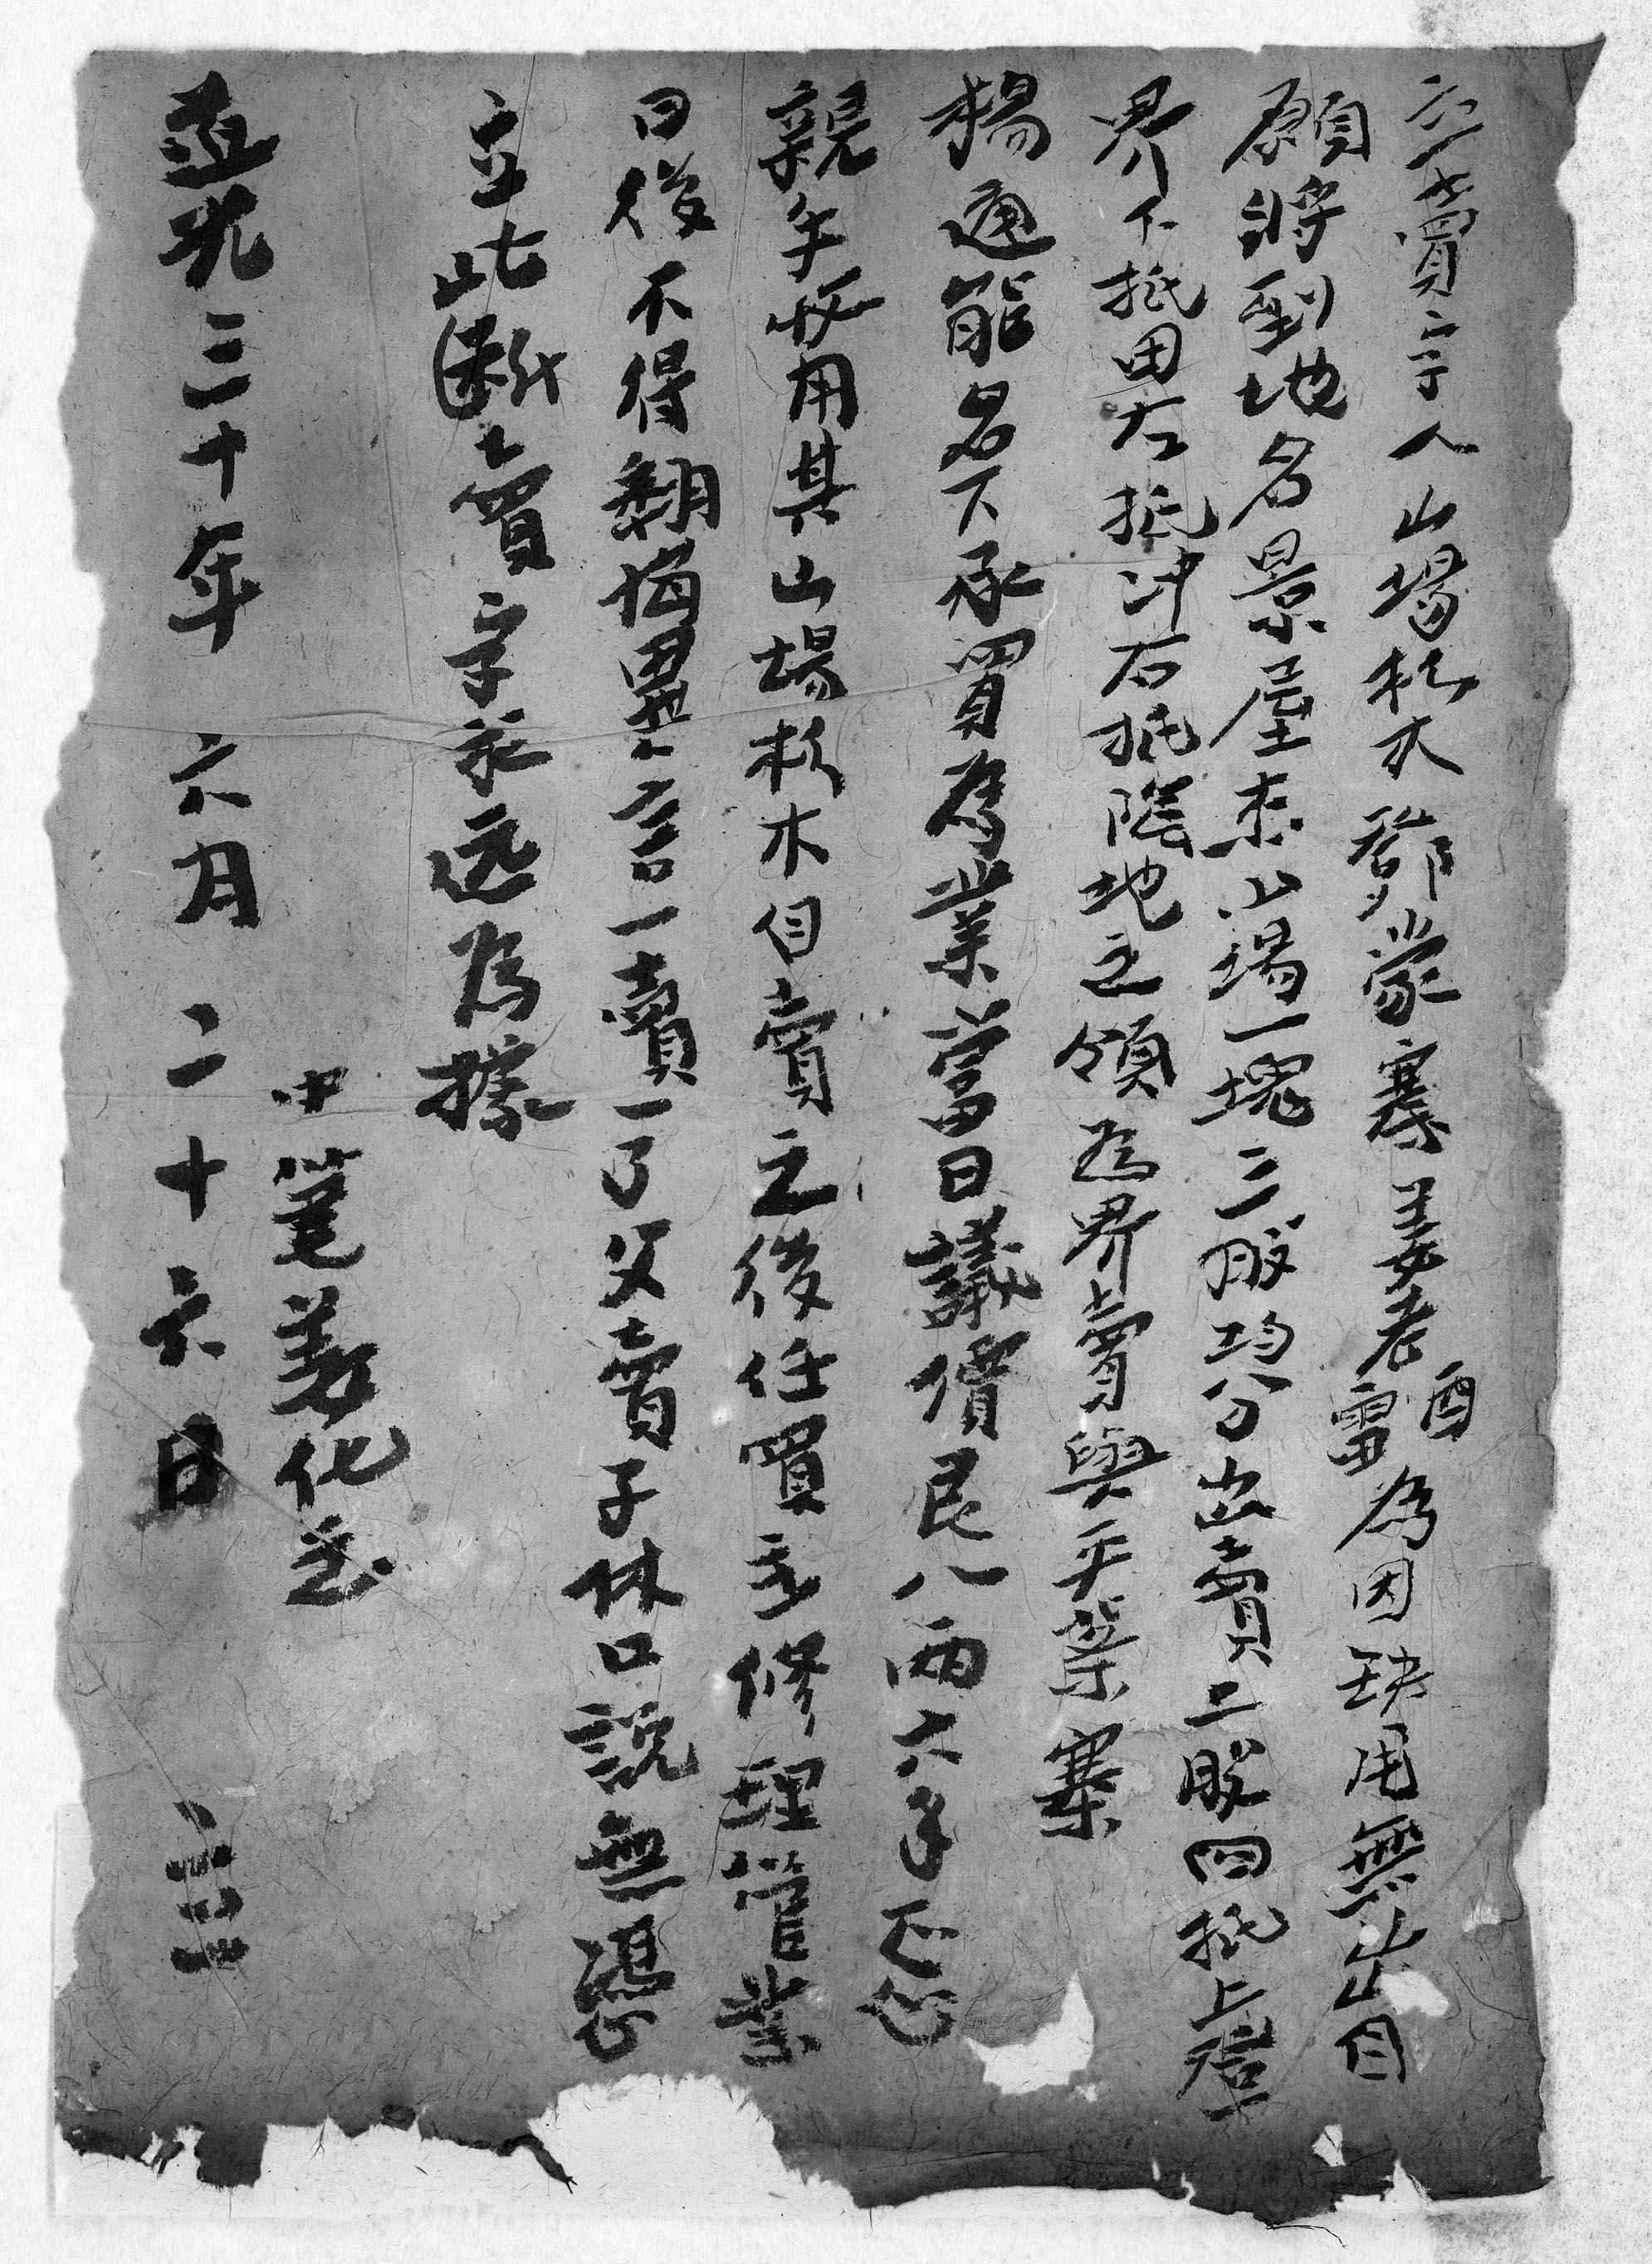 立賣字人山場杉木鄧蒙寨姜老酉雷為因缺用無出自
願將到地名景屋桒山場一塊三股均分出賣二股四抵上登
界下抵田左抵冲右抵陰地之領為界賣與平寨
楊通能名下承買為業當日議價艮八兩六錢正
親手收用其山場杉木自賣之後任買主修理管業
日後不得翻悔異言一賣一了父賣子休口說無憑
立此断賣字永远為據
中筆姜化玉
道光三十年 六月 二十六日 立